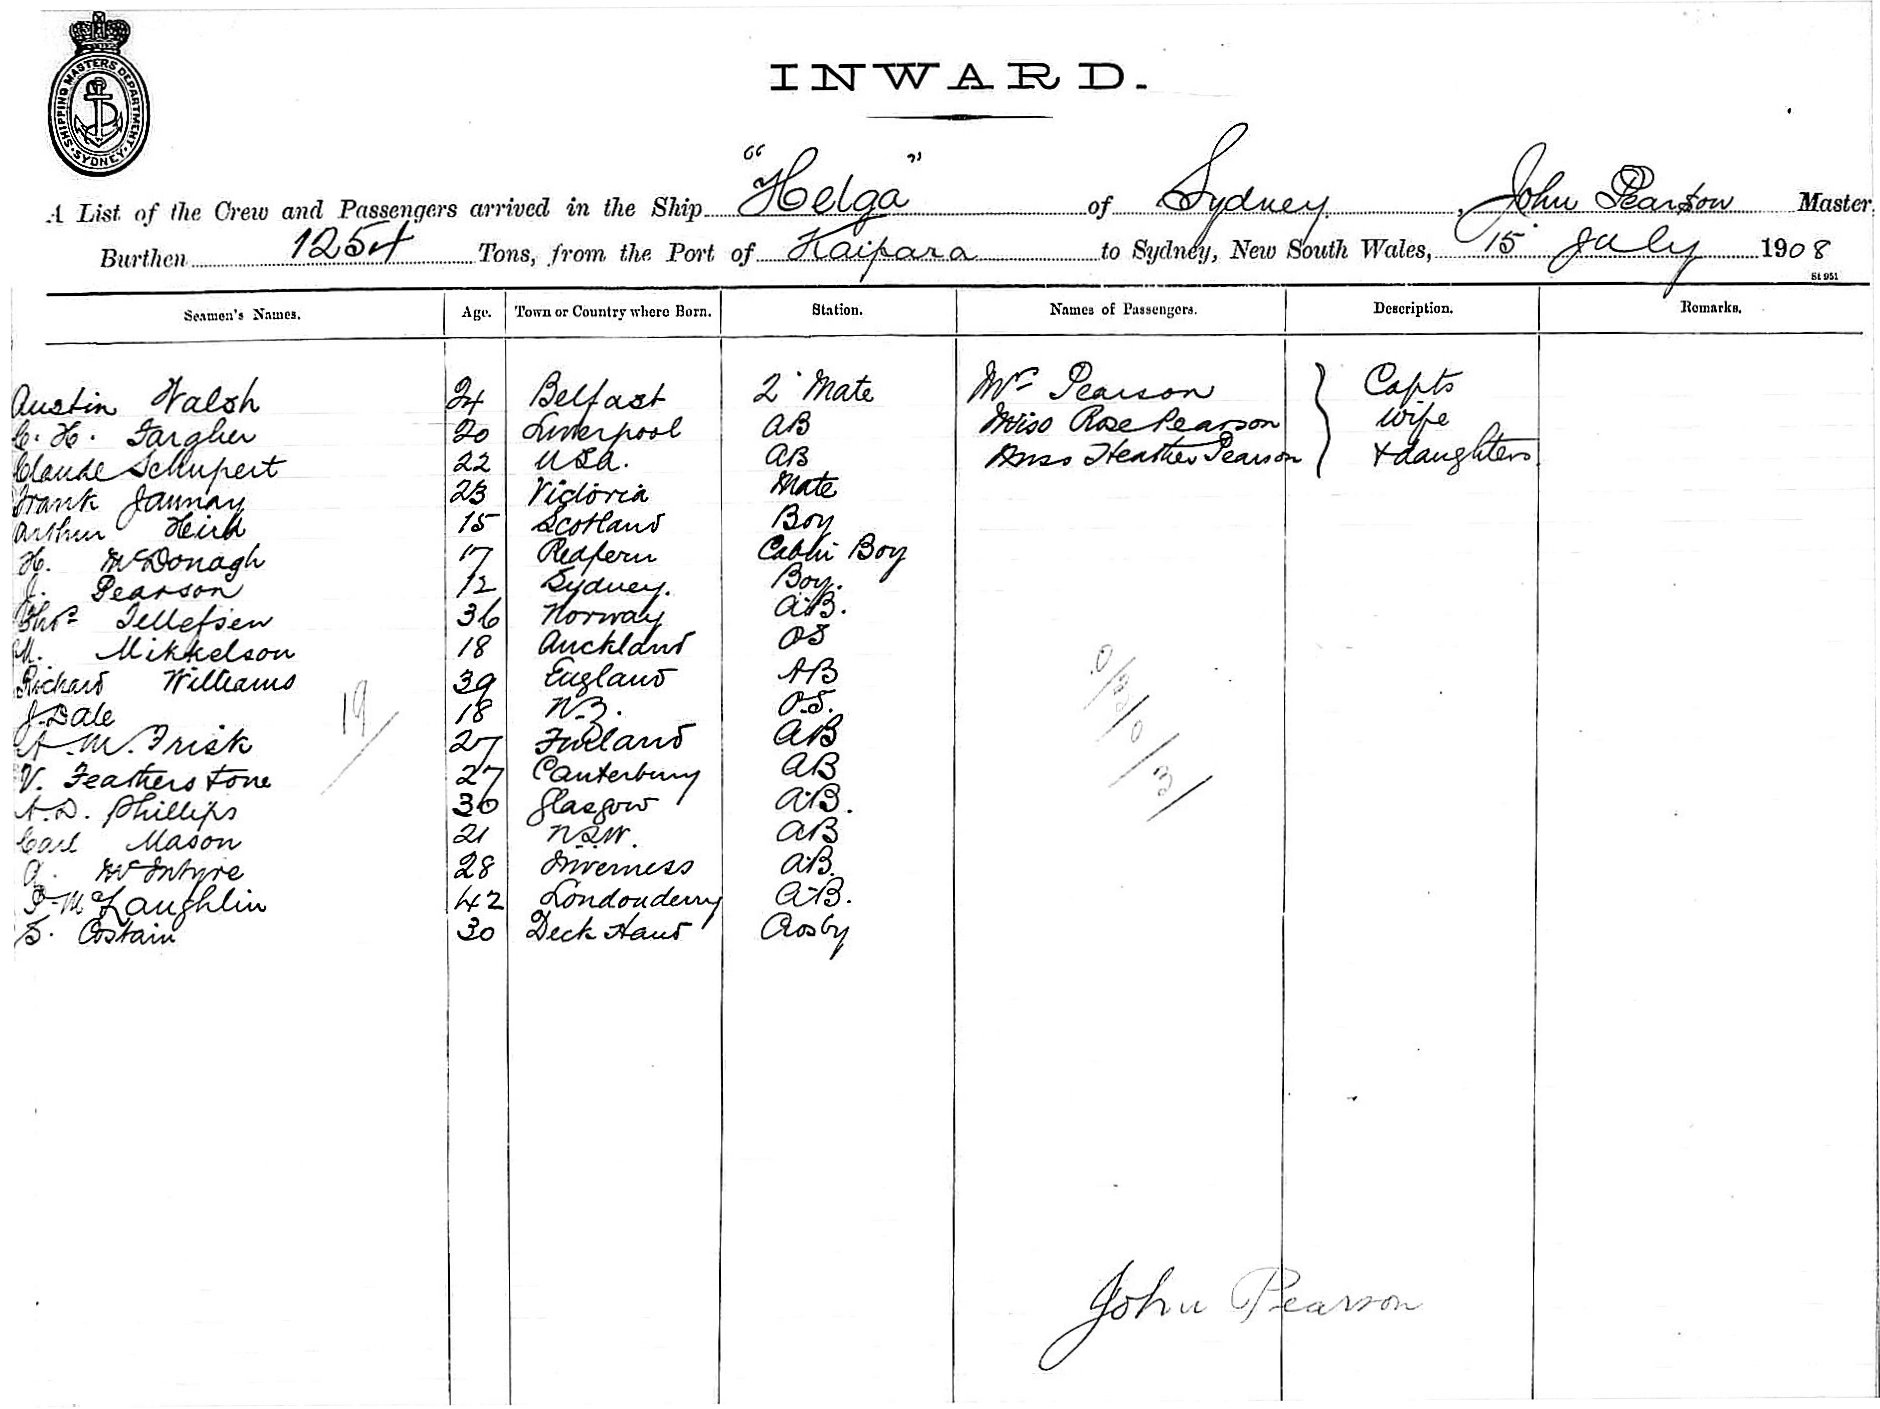 SHIPPING MASTERS DEPARTMENT
SYDNEY
INWARD.
A List of the Crew and Passengers arrived in the Ship "Helga" of Sydney, John Pearson Master
Burthen 1254 Tons, from the Port of Kaipara to Sydney, New South Wales, 15 July 1908
St 951
Seamen's Names. Age. Town or Country where Born. Station. Names of Passengers. Description. Remarks.
Austin Walsh 24 Belfast 2 Mate Mrs Pearson Capts
C. H. Fargher 20 Liverpool AB Miss Rose Pearson wife
Claude Schupert 22 USA. AB Miss Heather Pearson + daughters
Frank 23 Victoria Mate
Arthur 15 Scotland Boy
H. McDonagh 17 Redfern Cabin Boy
J. Pearson 12 Sydney. Boy.
Thos Tellefsen 36 Norway A.B.
M. Mikkelson 18 Auckland OS
Richard Williams 39 England AB
J. Dale 18 N.Z. O.S.
A. M. Frisk 27 Finland AB
V. Featherstone 27 Canterbury AB
A. D. Phillips 30 Glasgow A.B.
Carl Mason 21 NSW. AB
A. McIntyre 28 Inverness A.B.
P. McLaughlin 42 Londonderry A.B.
S. Costain 30 Deck Hand Crosby
19/
John Pearson